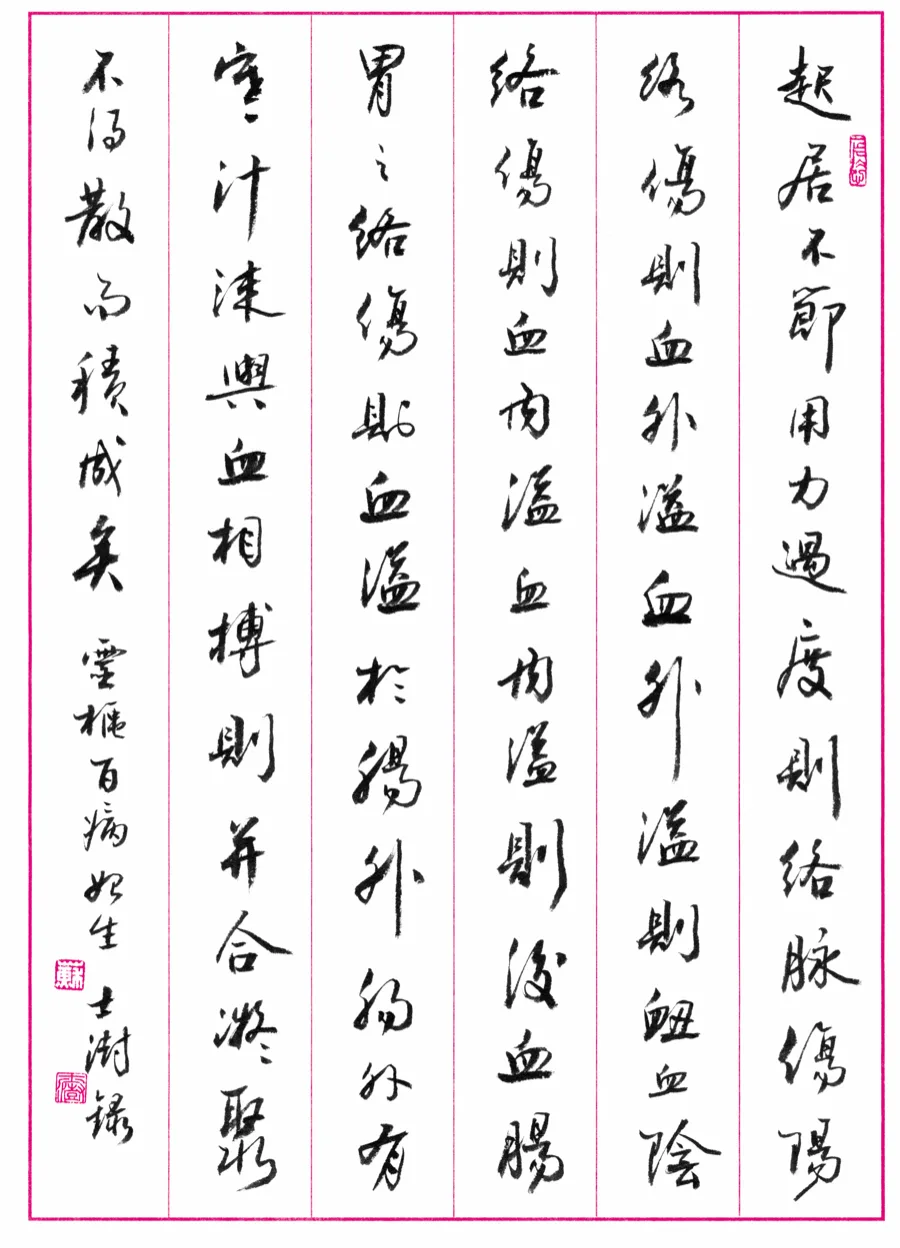 起居不節用力過度則絡脉傷陽
絡傷則血外溢血外溢則衄血陰
絡傷則血内溢血内溢則後血腸
胃之絡傷則血溢於腸外腸外有
寒汁沫與血相搏則并合凝聚
不得散而積成矣 靈樞百病始生 士澍錄
蘇